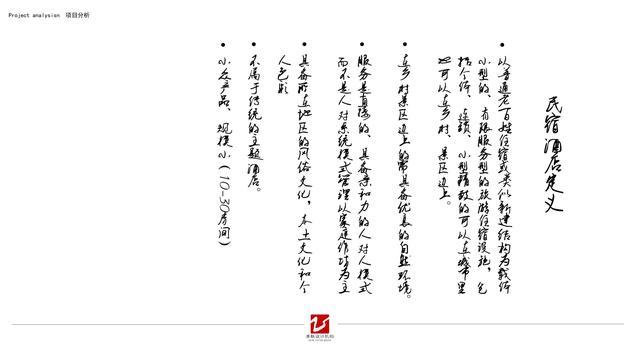 Project analysisn 项目分析
民宿酒店定义
• 以普通老百姓住宿或类似新建结构为载体
小型的、有限服务型的旅游住宿设施，包
括个体、连锁、小型精致的可以在城市里
也可以在乡村、景区边上。
• 在乡村景区边上的常具备优美的自然环境。
• 服务是直接的、具备亲和力的人对人模式
而不是人对系统模式管理以家庭作坊为主
• 具备所在地区的风俗文化，本土文化和个
人色彩
• 不属于传统的主题酒店。
• 小众产品、规模小(10-30房间)